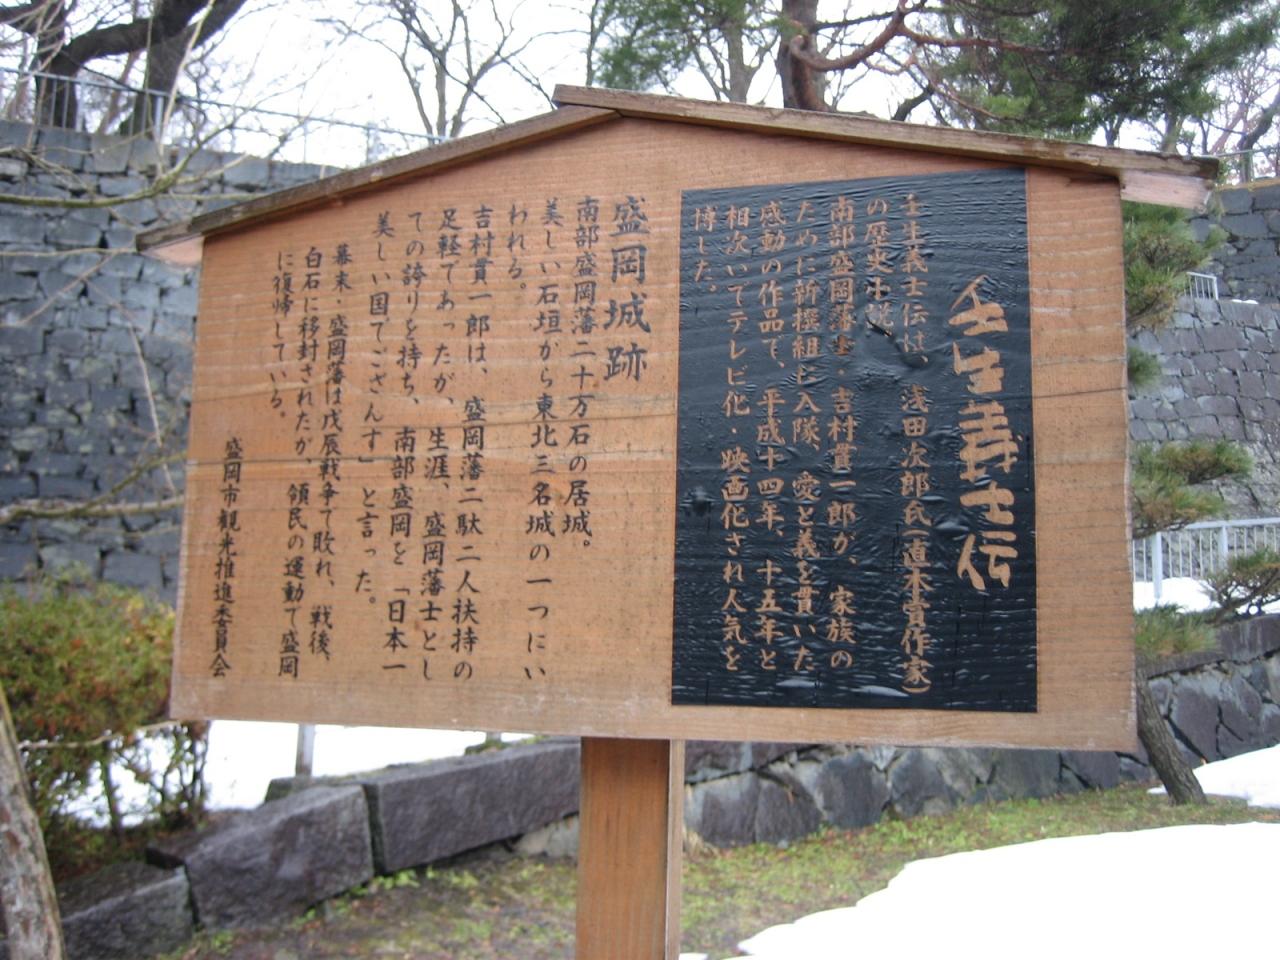 壬生義士伝
壬生義士伝は、浅田次郎氏(直木賞作家)
の歴史小説
南部盛岡藩士・吉村貫一郎が、家族の
ために新撰組に入隊、愛と義を貫いた
感動の作品で、平成十四年、十五年と
相次いでテレビ化・映画化され人気を
博した。
盛岡城跡
南部盛岡藩二十万石の居城。
美しい石垣から東北三名城の一つにい
われる。
吉村貫一郎は、盛岡藩二駄二人扶持の
足軽であったが、生涯、盛岡藩士とし
ての誇りを持ち、南部盛岡を「日本一
美しい国でござんす」と言った。
幕末・盛岡藩は戊辰戦争で敗れ、戦後、
白石に移封されたが、領民の運動で盛岡
に復帰している。
盛岡市観光推進委員会